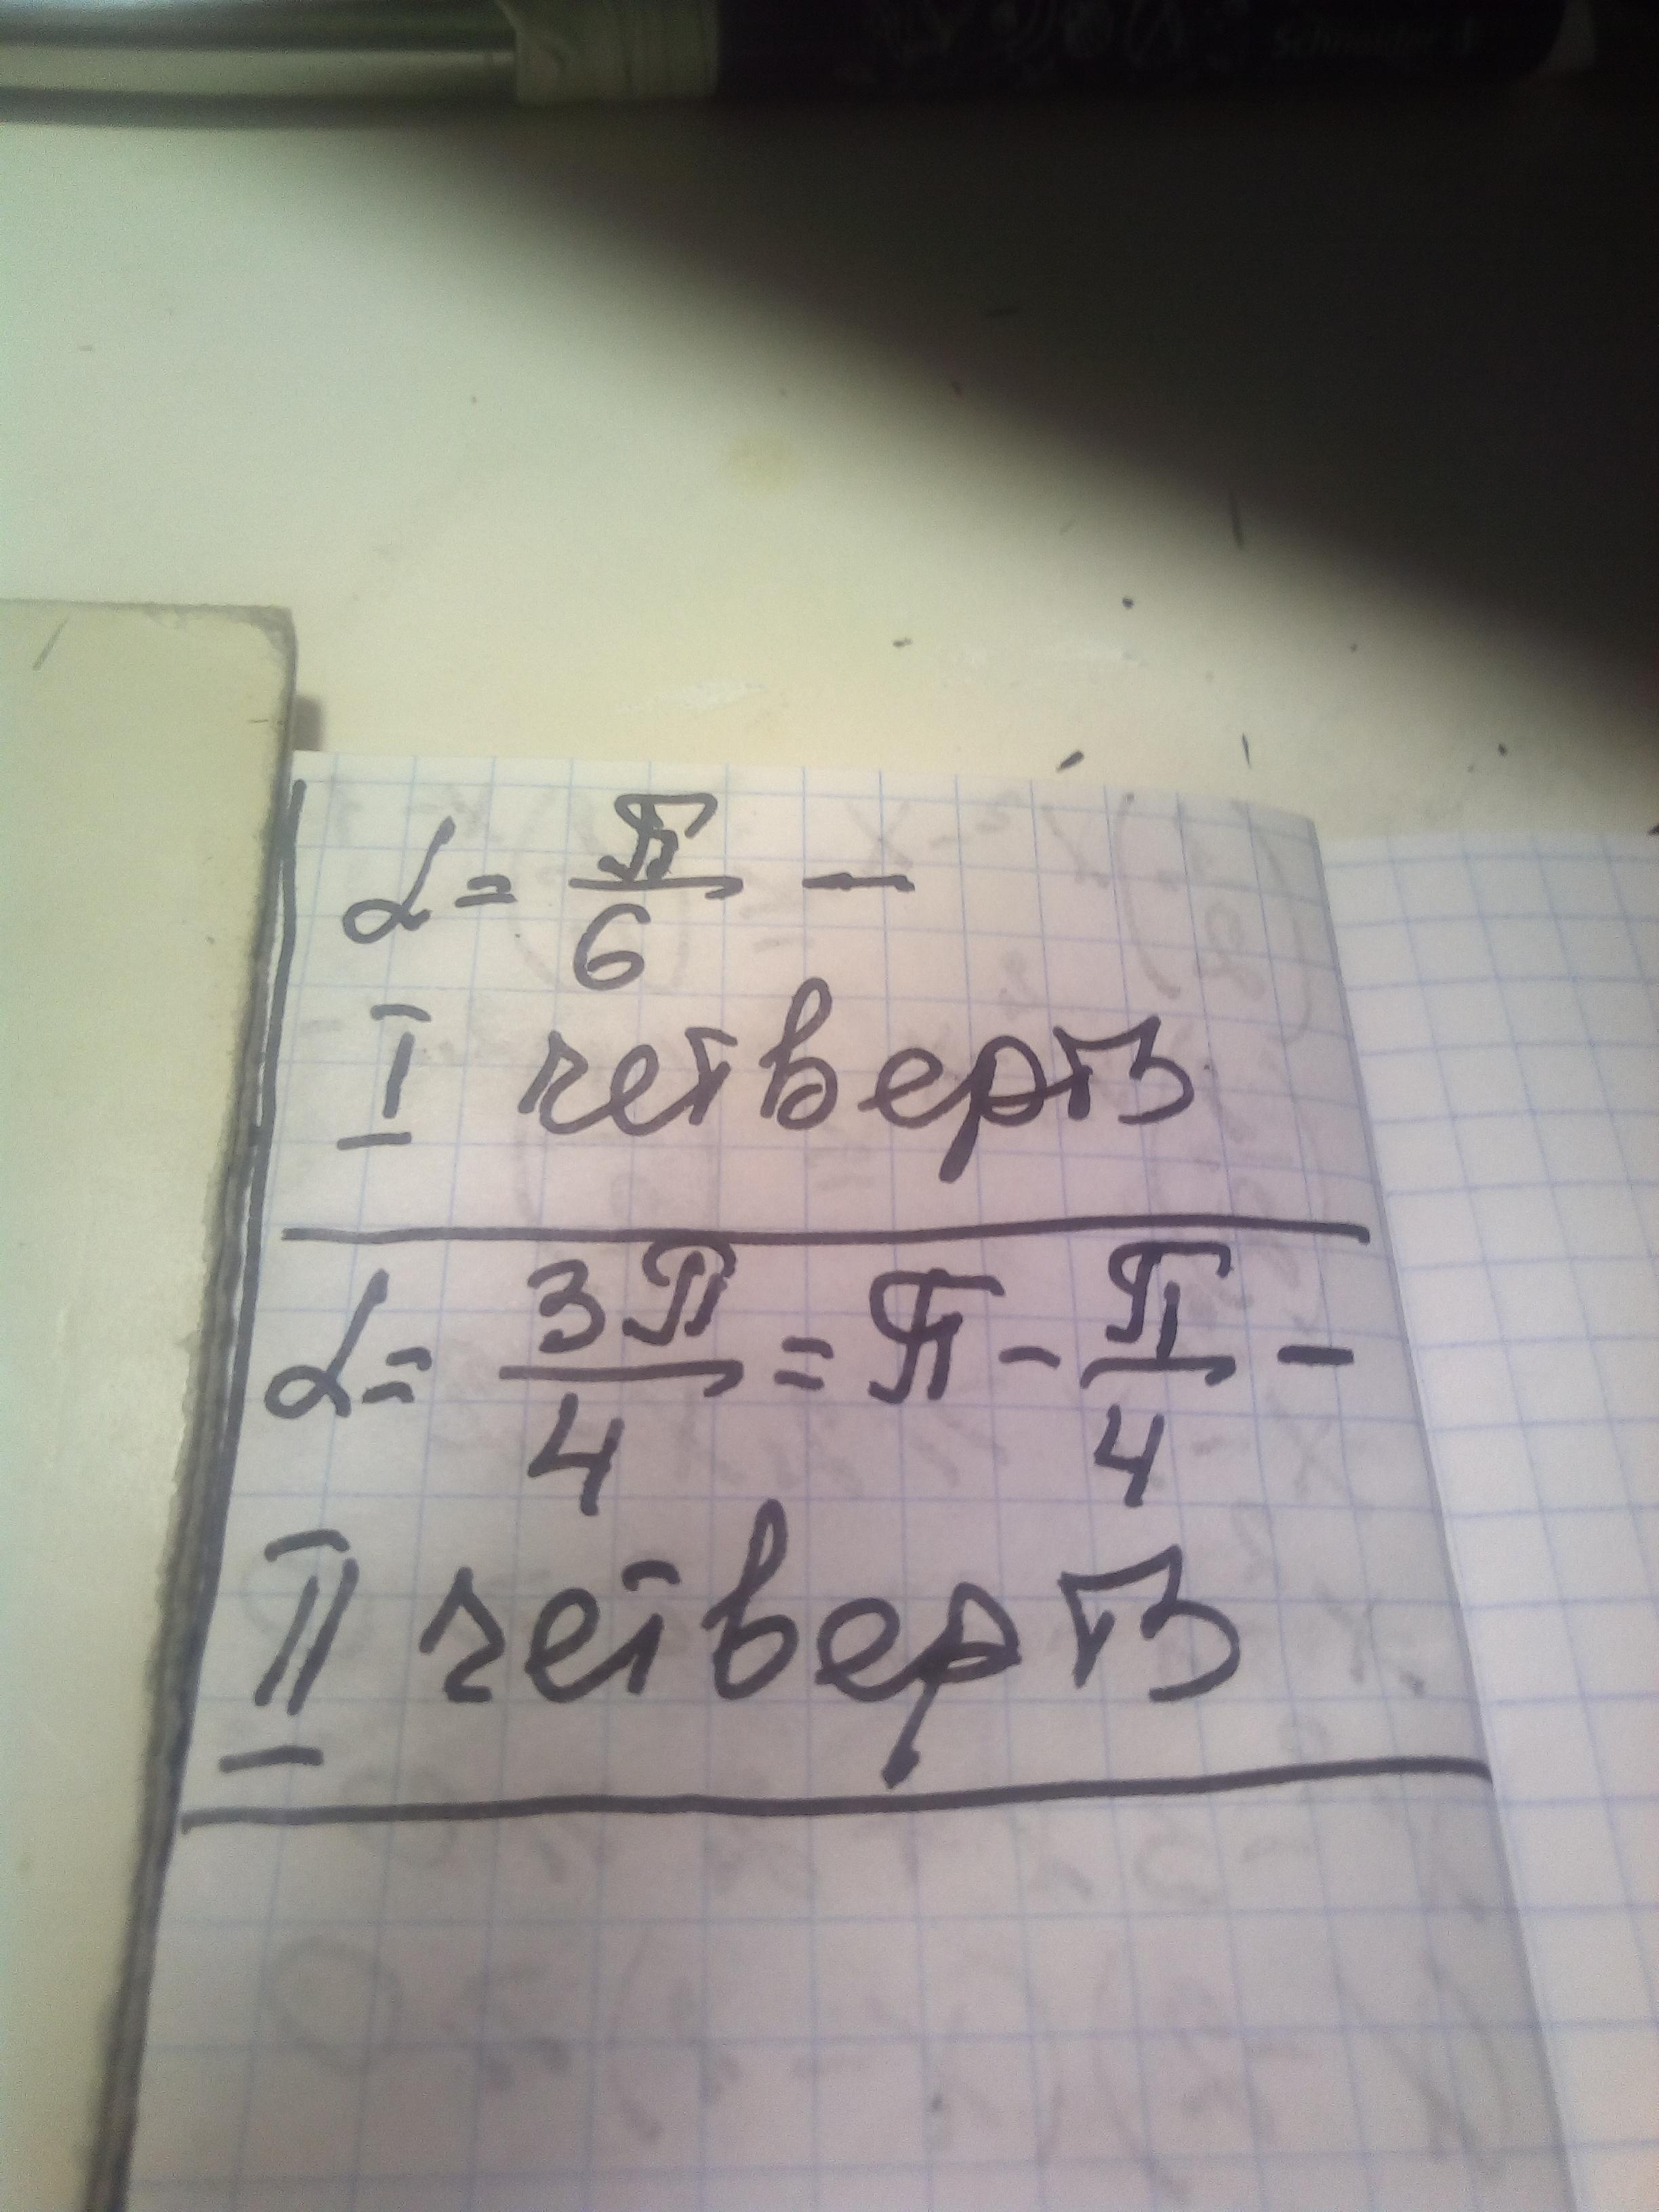 α = π/6 —
I четверть
α = 3π/4 = π - π/4 -
II четверть